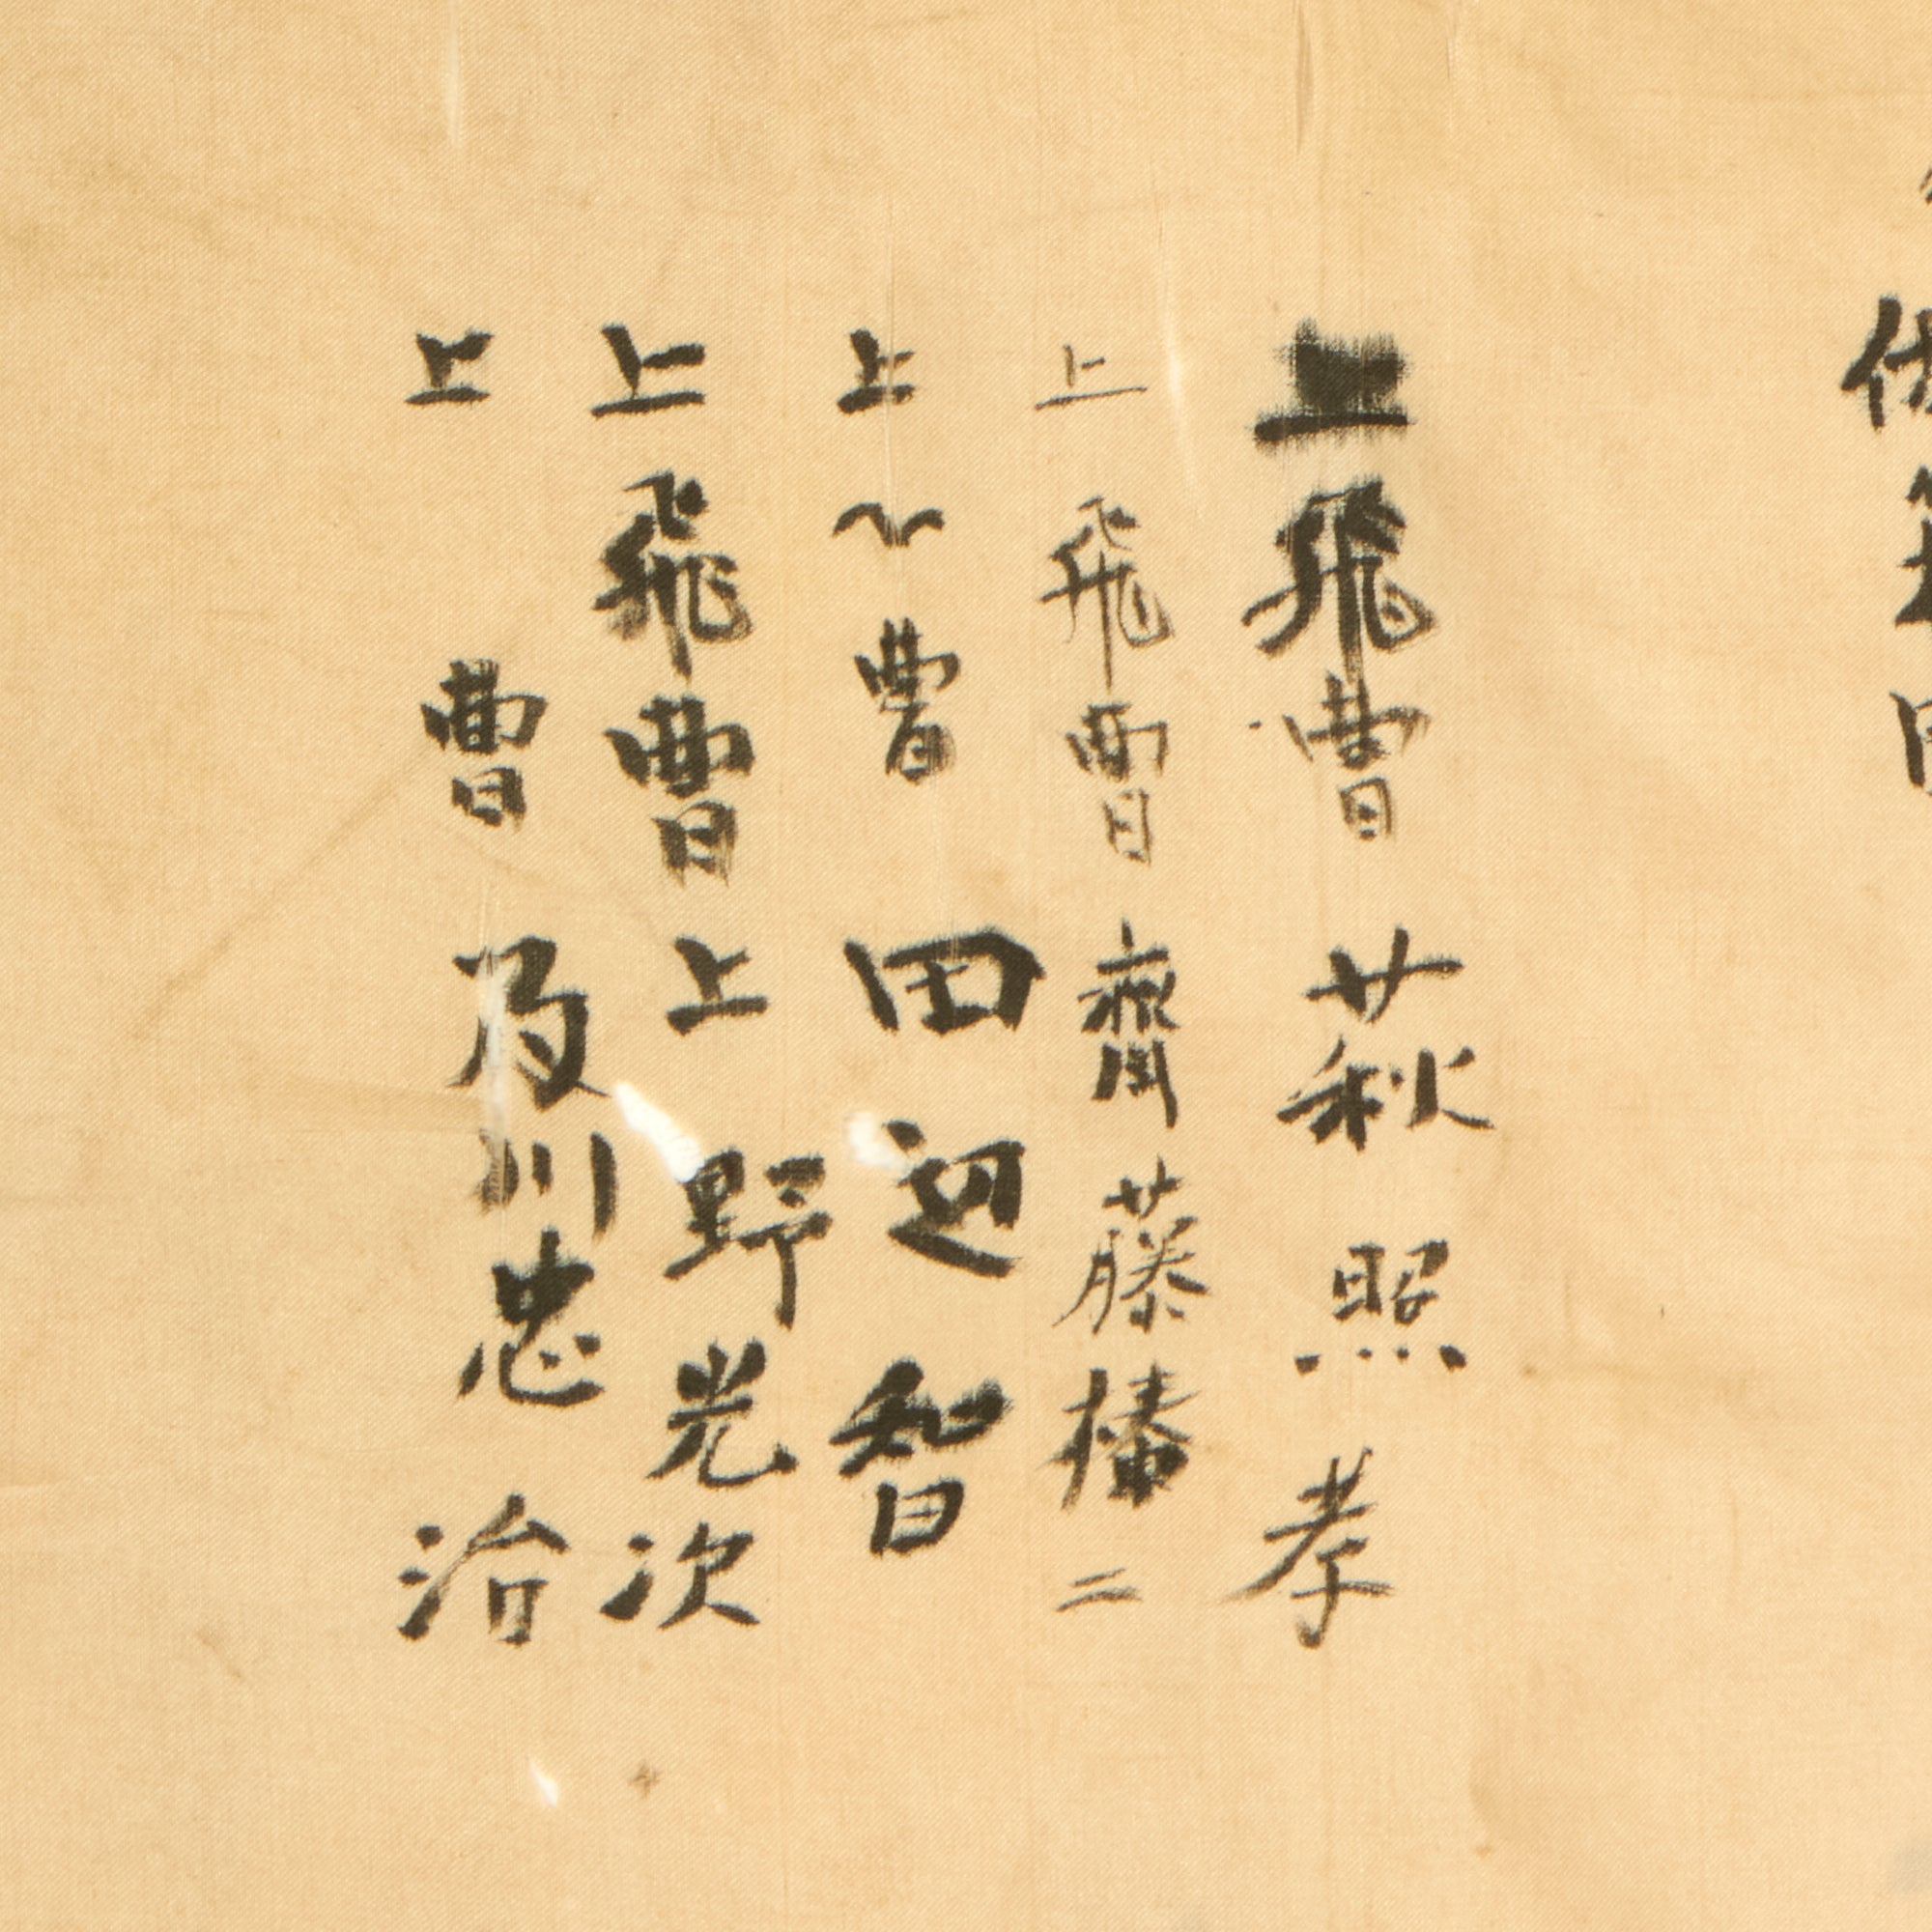 上飛曹 萩照孝
上飛曹 齊藤 二
上〃曹 田辺智
上飛曹 上野光次
上 曹 及川忠治